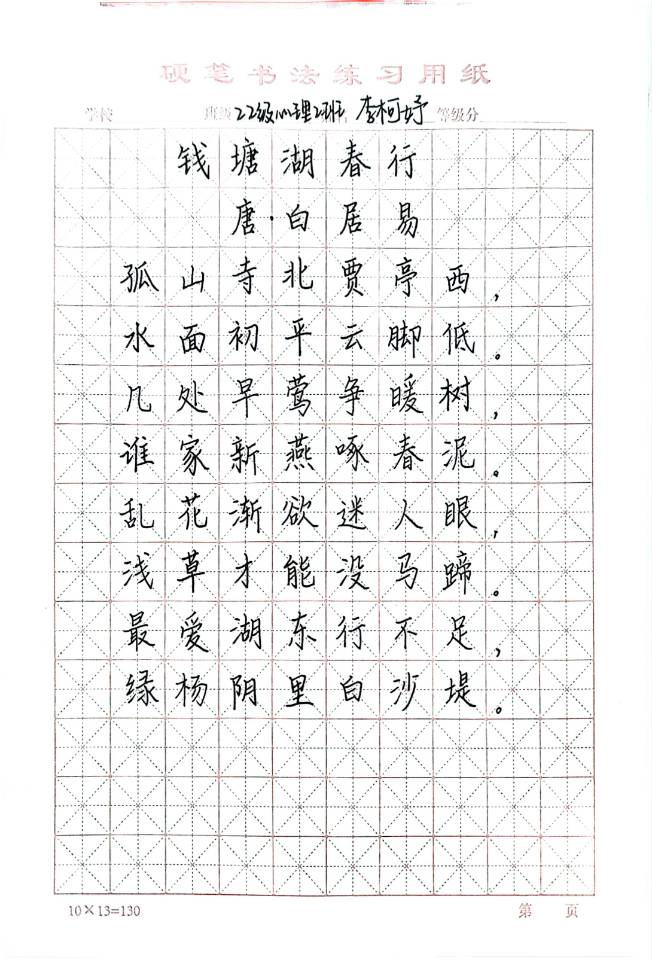 硬笔书法练习用纸
学校 班级 22级心理2班 李柯妤 等级分
钱塘湖春行
唐·白居易
孤山寺北贾亭西，
水面初平云脚低。
几处早莺争暖树，
谁家新燕啄春泥。
乱花渐欲迷人眼，
浅草才能没马蹄。
最爱湖东行不足，
缘杨阴里白沙堤。
10×13=130 第 页